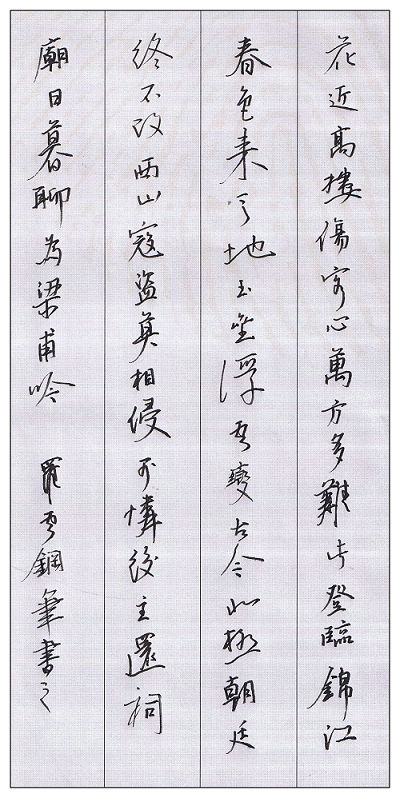 花近高樓傷客心萬方多難此登臨錦江
春色来天地玉壘浮雲變古今北極朝廷
終不改西山寇盜莫相侵可憐後主還祠
廟日暮聊為梁甫吟 羅雲鋼筆書之